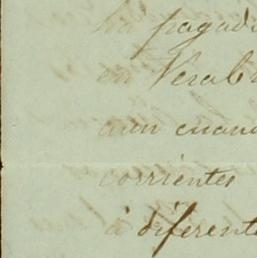 ha pagad
en Verab
aun cuand
corrientes
á diferent